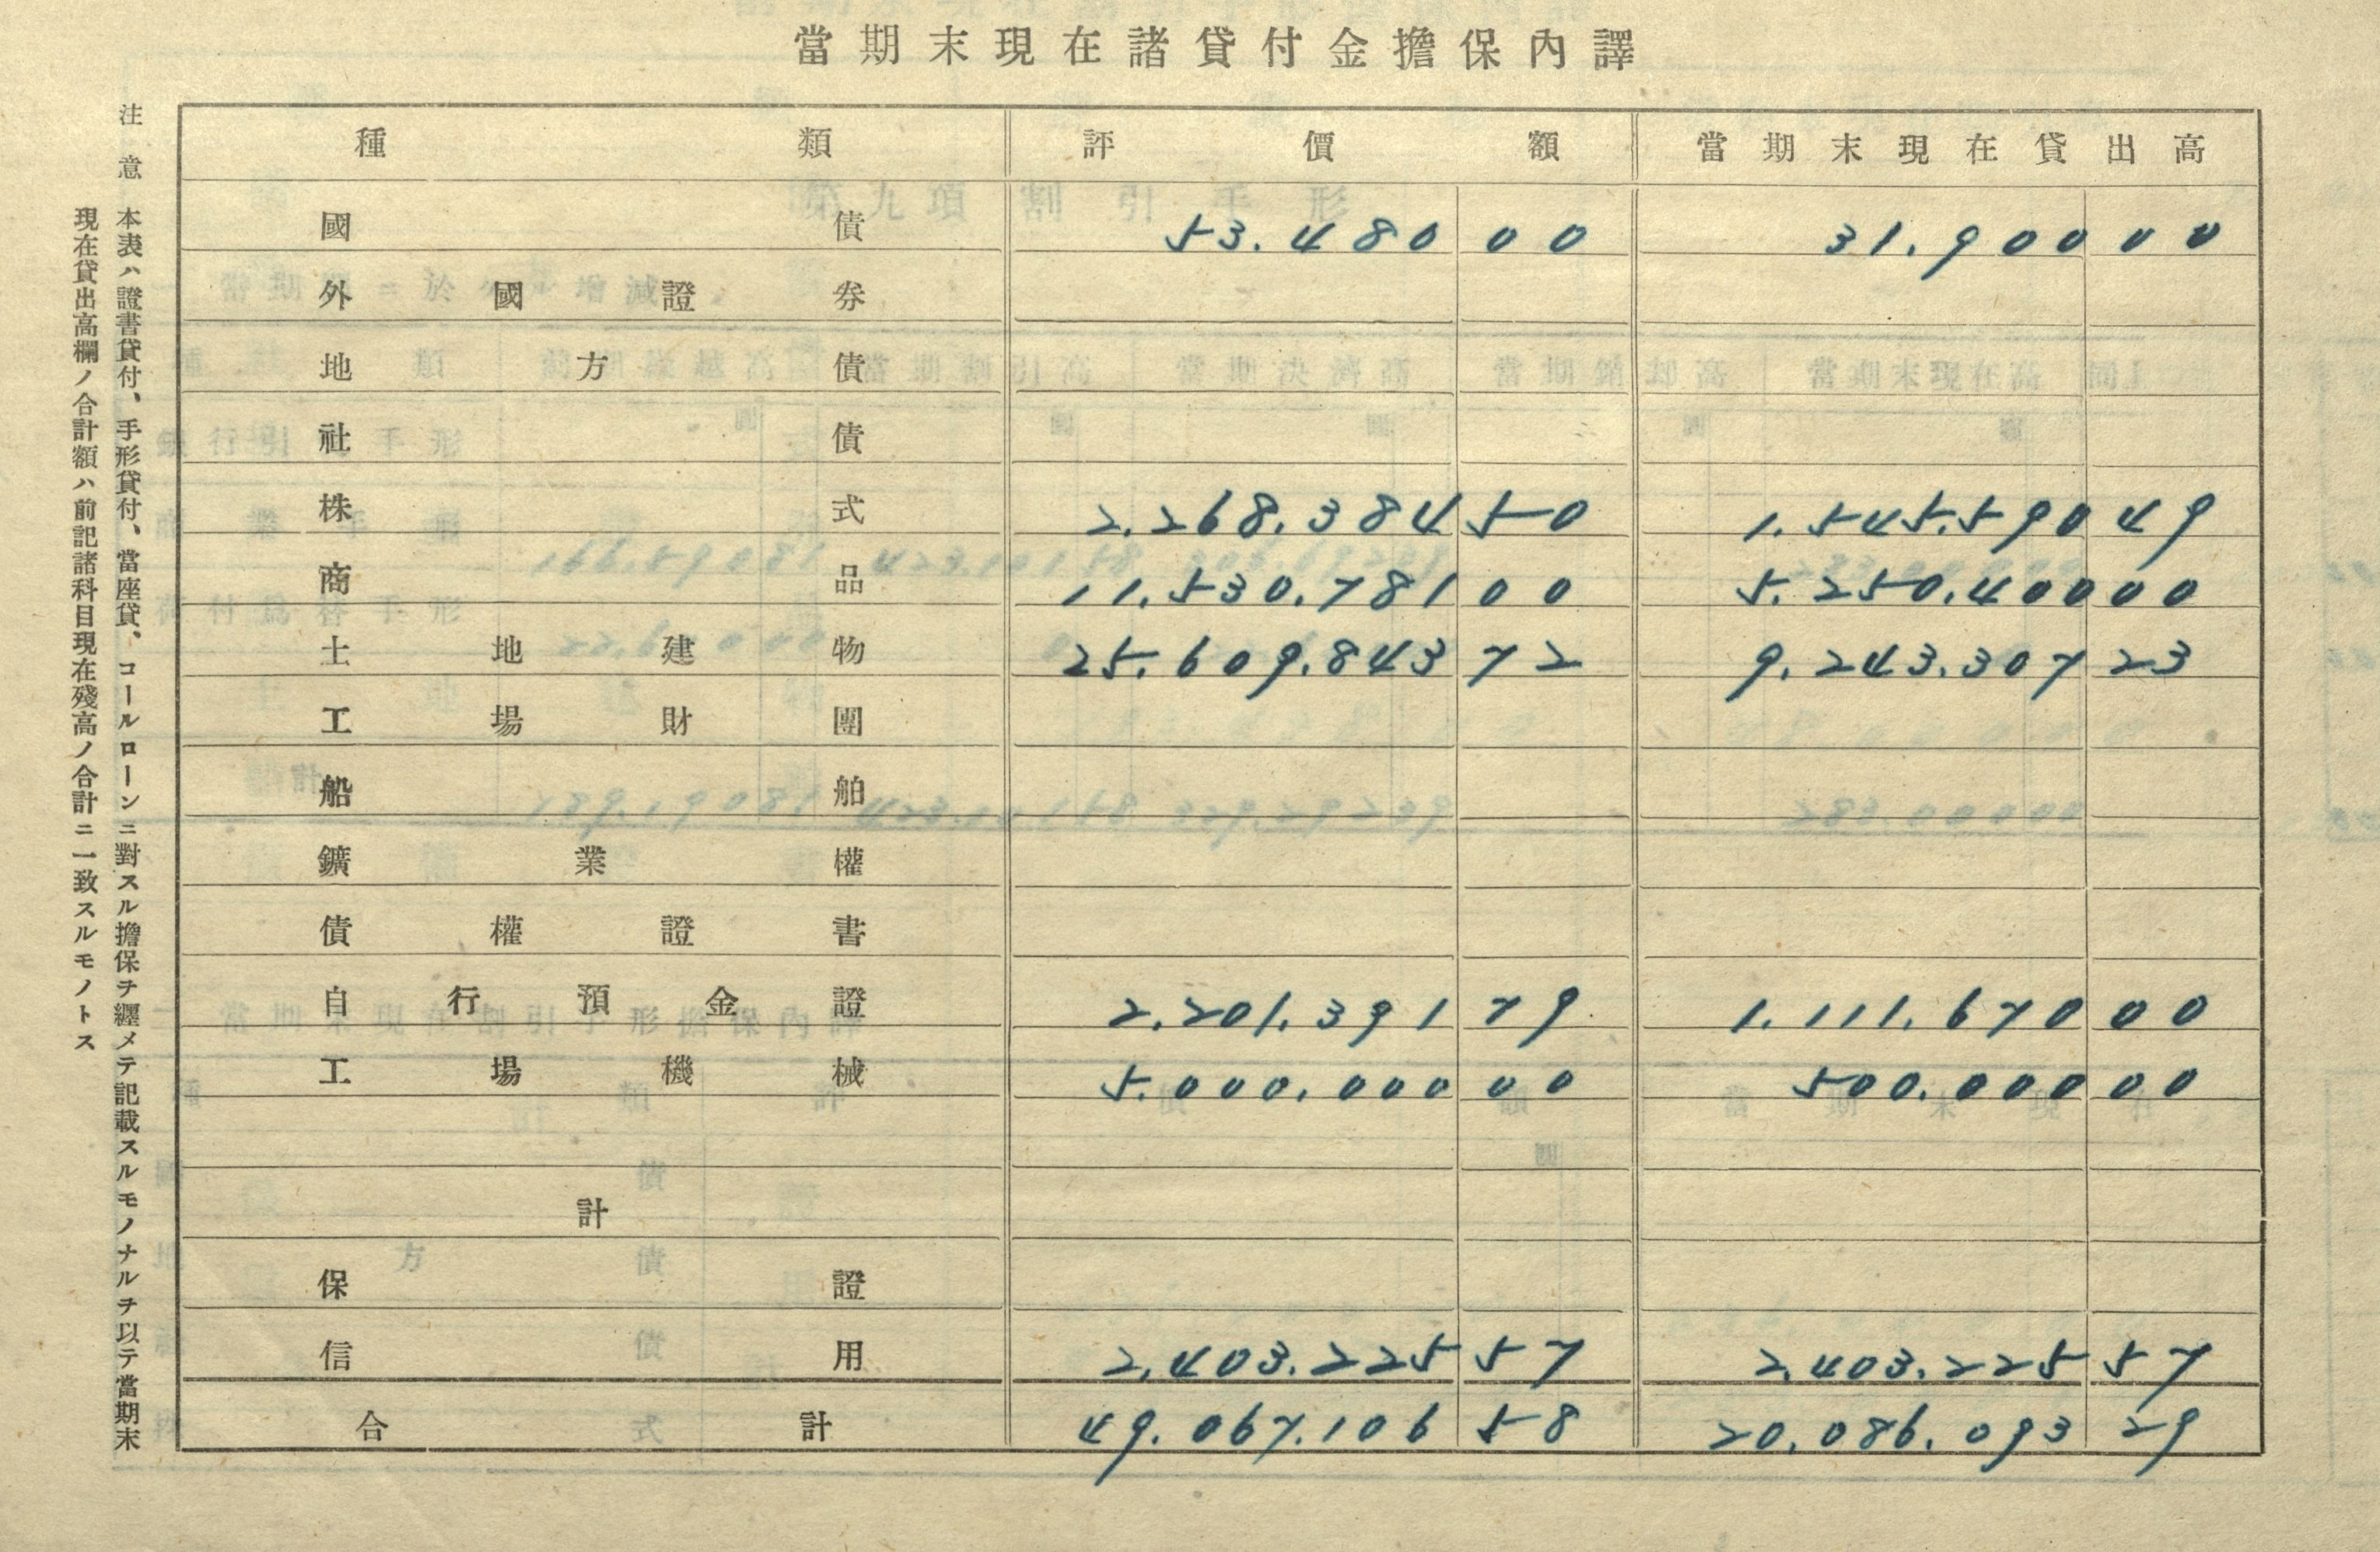 當期末現在諸貸付金擔保內譯
種類 評價額 當期末現在貸出高
國債 53.480 00 31.900 00
外國證券
地方債
社債
株式 2.268.384 50 1.545.590 49
商品 11.530.781 00 5.250.400 00
土地建物 25.609.843 72 9.243.307 23
工場財團
船舶
鑛業權
債權證書
自行預金證 2.201.391 79 1.111.670 00
工場機械 5.000.000 00 500.000 00
計
保證
信用 2.403.225 57 2.403.225 57
合計 49.067.106 58 20.086.093 29
注意 本表ハ證書貸付、手形貸付、當座貸、コールローンニ對スル擔保ヲ纒メテ記載スルモノナルヲ以テ當期末
現在貸出高欄ノ合計額ハ前記諸科目現在殘高ノ合計ニ一致スルモノトス